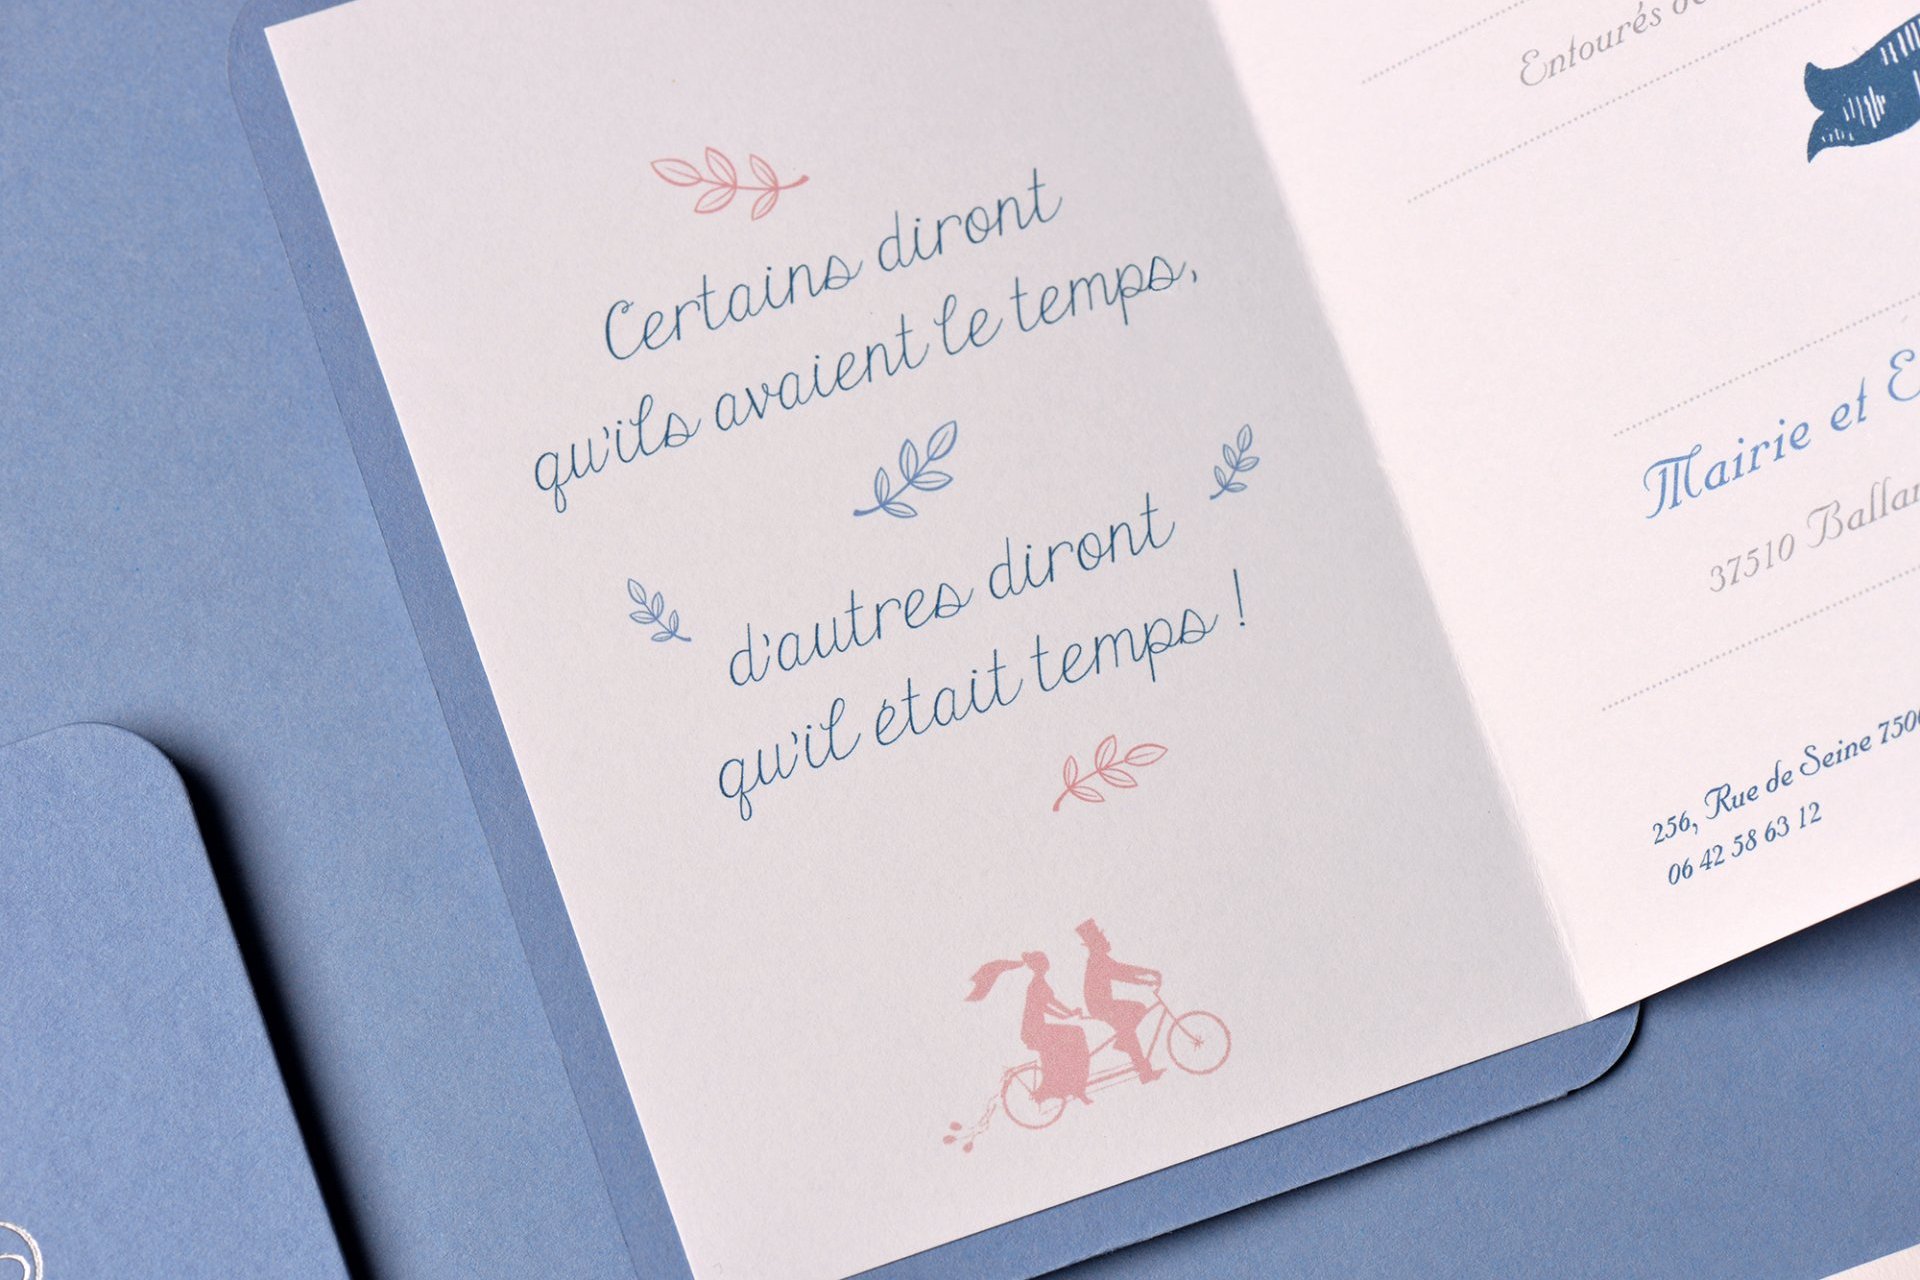 Certains diront
qu'ils avaient le temps,
d'autres diront
qu'il était temps !
Entourés
Mairie et
37510
256, Rue de Seine
06 42 58 63 12